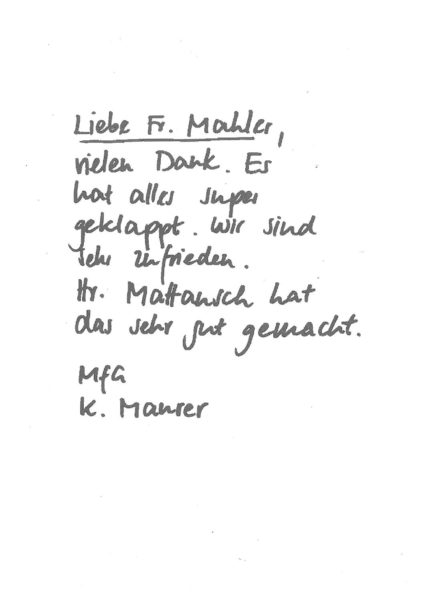 Liebe Fr. Mahler,
vielen Dank. Es
hat alles super
geklappt. Wir sind
sehr zufrieden.
Hr. Mattausch hat
das sehr gut gemacht.
MfG
K. Maurer